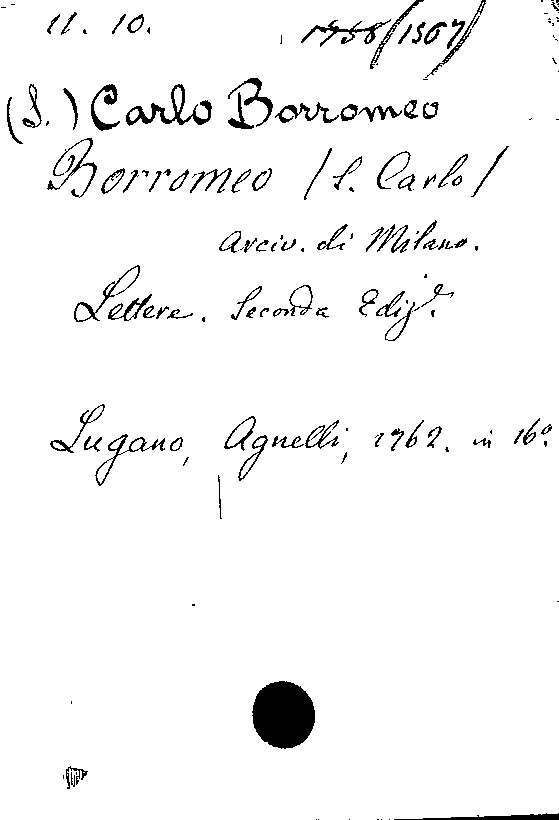 11. 10.
1758 (1567)
(S.) Carlo Borromeo
Borromeo (S. Carlo)
Arciv. di Milano.
Lettere. Seconda Ediz.e
Lugano, Agnelli, 1762. in 16º